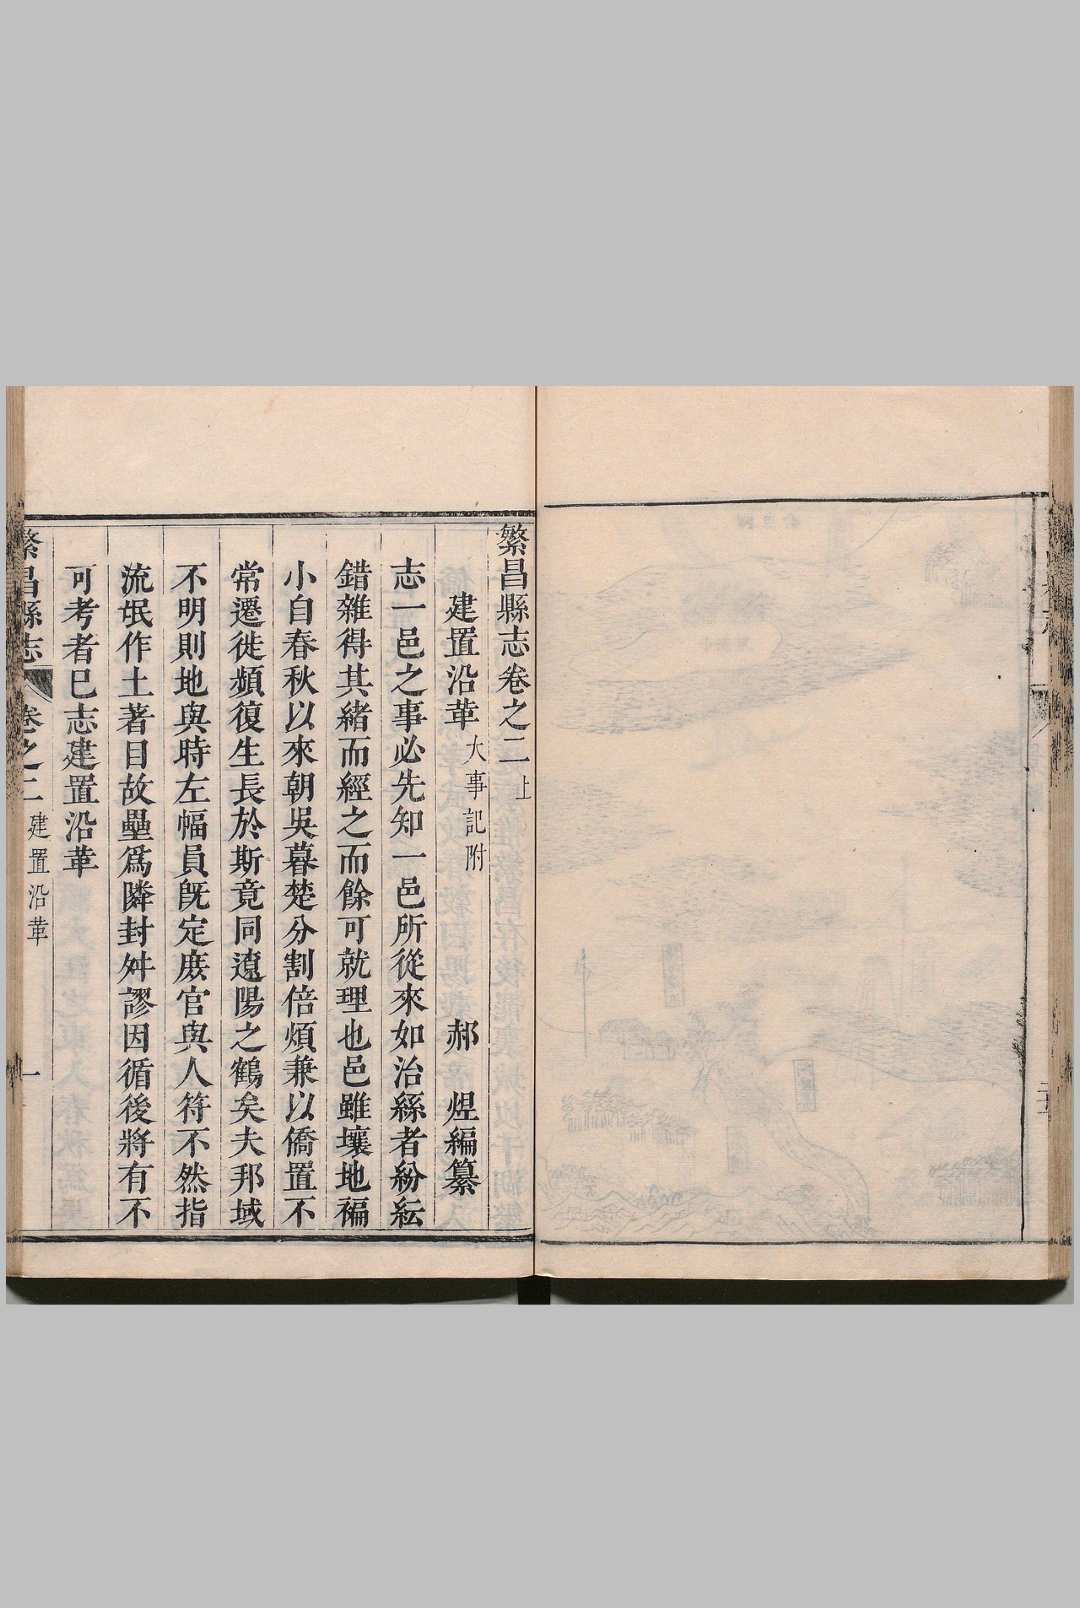 繁昌縣志卷之二上
建置沿革大事記附　郝　煜編纂
志一邑之事必先知一邑所從來如治絲者紛紜
錯雜得其緒而經之而餘可就理也邑雖壤地褊
小自春秋以來朝吳暮楚分割倍煩兼以僑置不
常遷徙頻復生長於斯竟同遼陽之鶴矣夫邦域
不明則地與時左幅員旣定庻官與人符不然指
流氓作土著目故壘爲隣封舛謬因循後將有不
可考者巳志建置沿革
繁昌縣志　卷之二　建置沿革　一